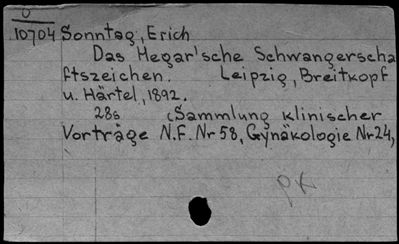 O
10704 Sonntag, Erich
Das Hegar'sche Schwangerscha
ftszeichen. Leipzig, Breitkopf
u. Härtel, 1892.
28s (Sammlung klinischer
Vorträge N.F. Nr 58, Gynäkologie Nr 24,
PK